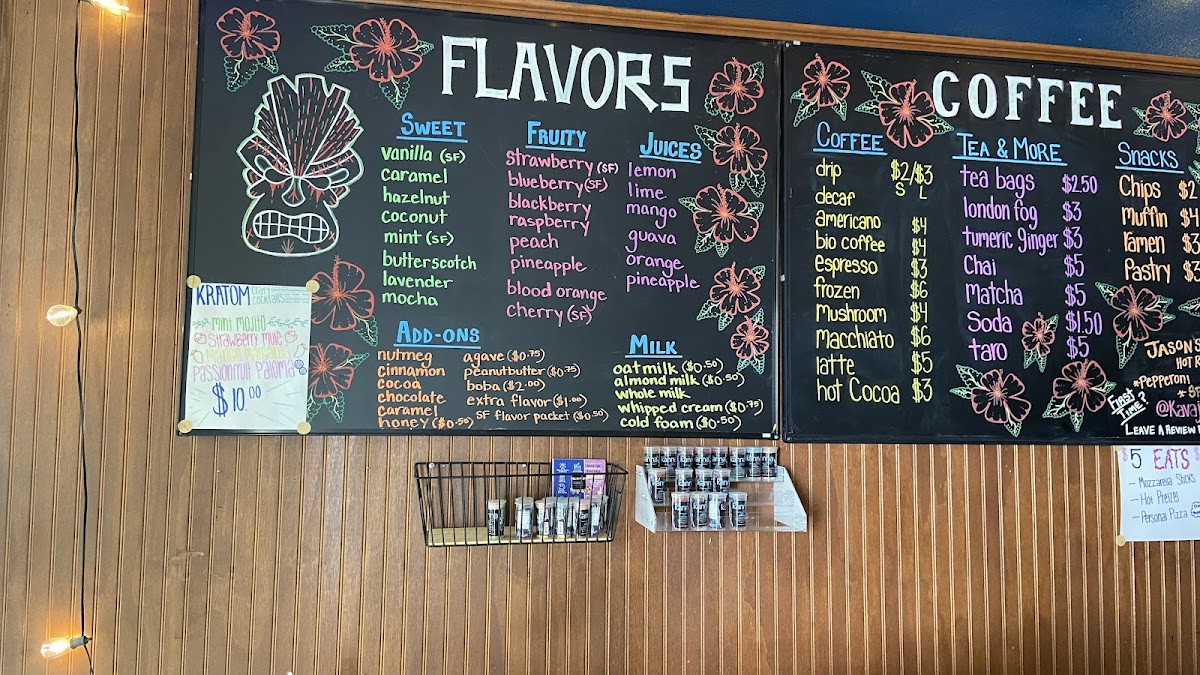 FLAVORS
SWEET
vanilla (SF)
caramel
hazelnut
coconut
mint (SF)
butterscotch
lavender
mocha
FRUITY
strawberry (SF)
blueberry (SF)
blackberry
raspberry
peach
pineapple
blood orange
cherry (SF)
JUICES
lemon
lime
mango
guava
orange
pineapple
ADD-ONS
nutmeg
cinnamon
cocoa
chocolate
caramel
honey ($0.50)
agave ($0.75)
peanutbutter ($0.75)
boba ($2.00)
extra flavor ($1.00)
SF flavor packet ($0.50)
MILK
oatmilk ($0.50)
almond milk ($0.50)
whole milk
whipped cream ($0.75)
cold foam ($0.50)
KRATOM
cocktails
MINT MOJITO
Strawberry Mule
PASSIONFRUIT PALOMA
$10.00
COFFEE
COFFEE
drip $2/$3
S L
decaf
americano $4
bio coffee $4
espresso $3
frozen $6
mushroom $4
macchiato $6
latte $5
hot Cocoa $3
TEA & MORE
tea bags $2.50
london fog $3
tumeric ginger $3
Chai $5
Matcha $5
Soda $1.50
taro $5
SNACKS
Chips $2
muffin $4
ramen $3
Pastry $3
JASON'S
*Pepperoni
FIRST TIME?
@Kava
LEAVE A REVIEW
$5 EATS
- Mozzarella Sticks
- Hot Pretzel
- Personal Pizza